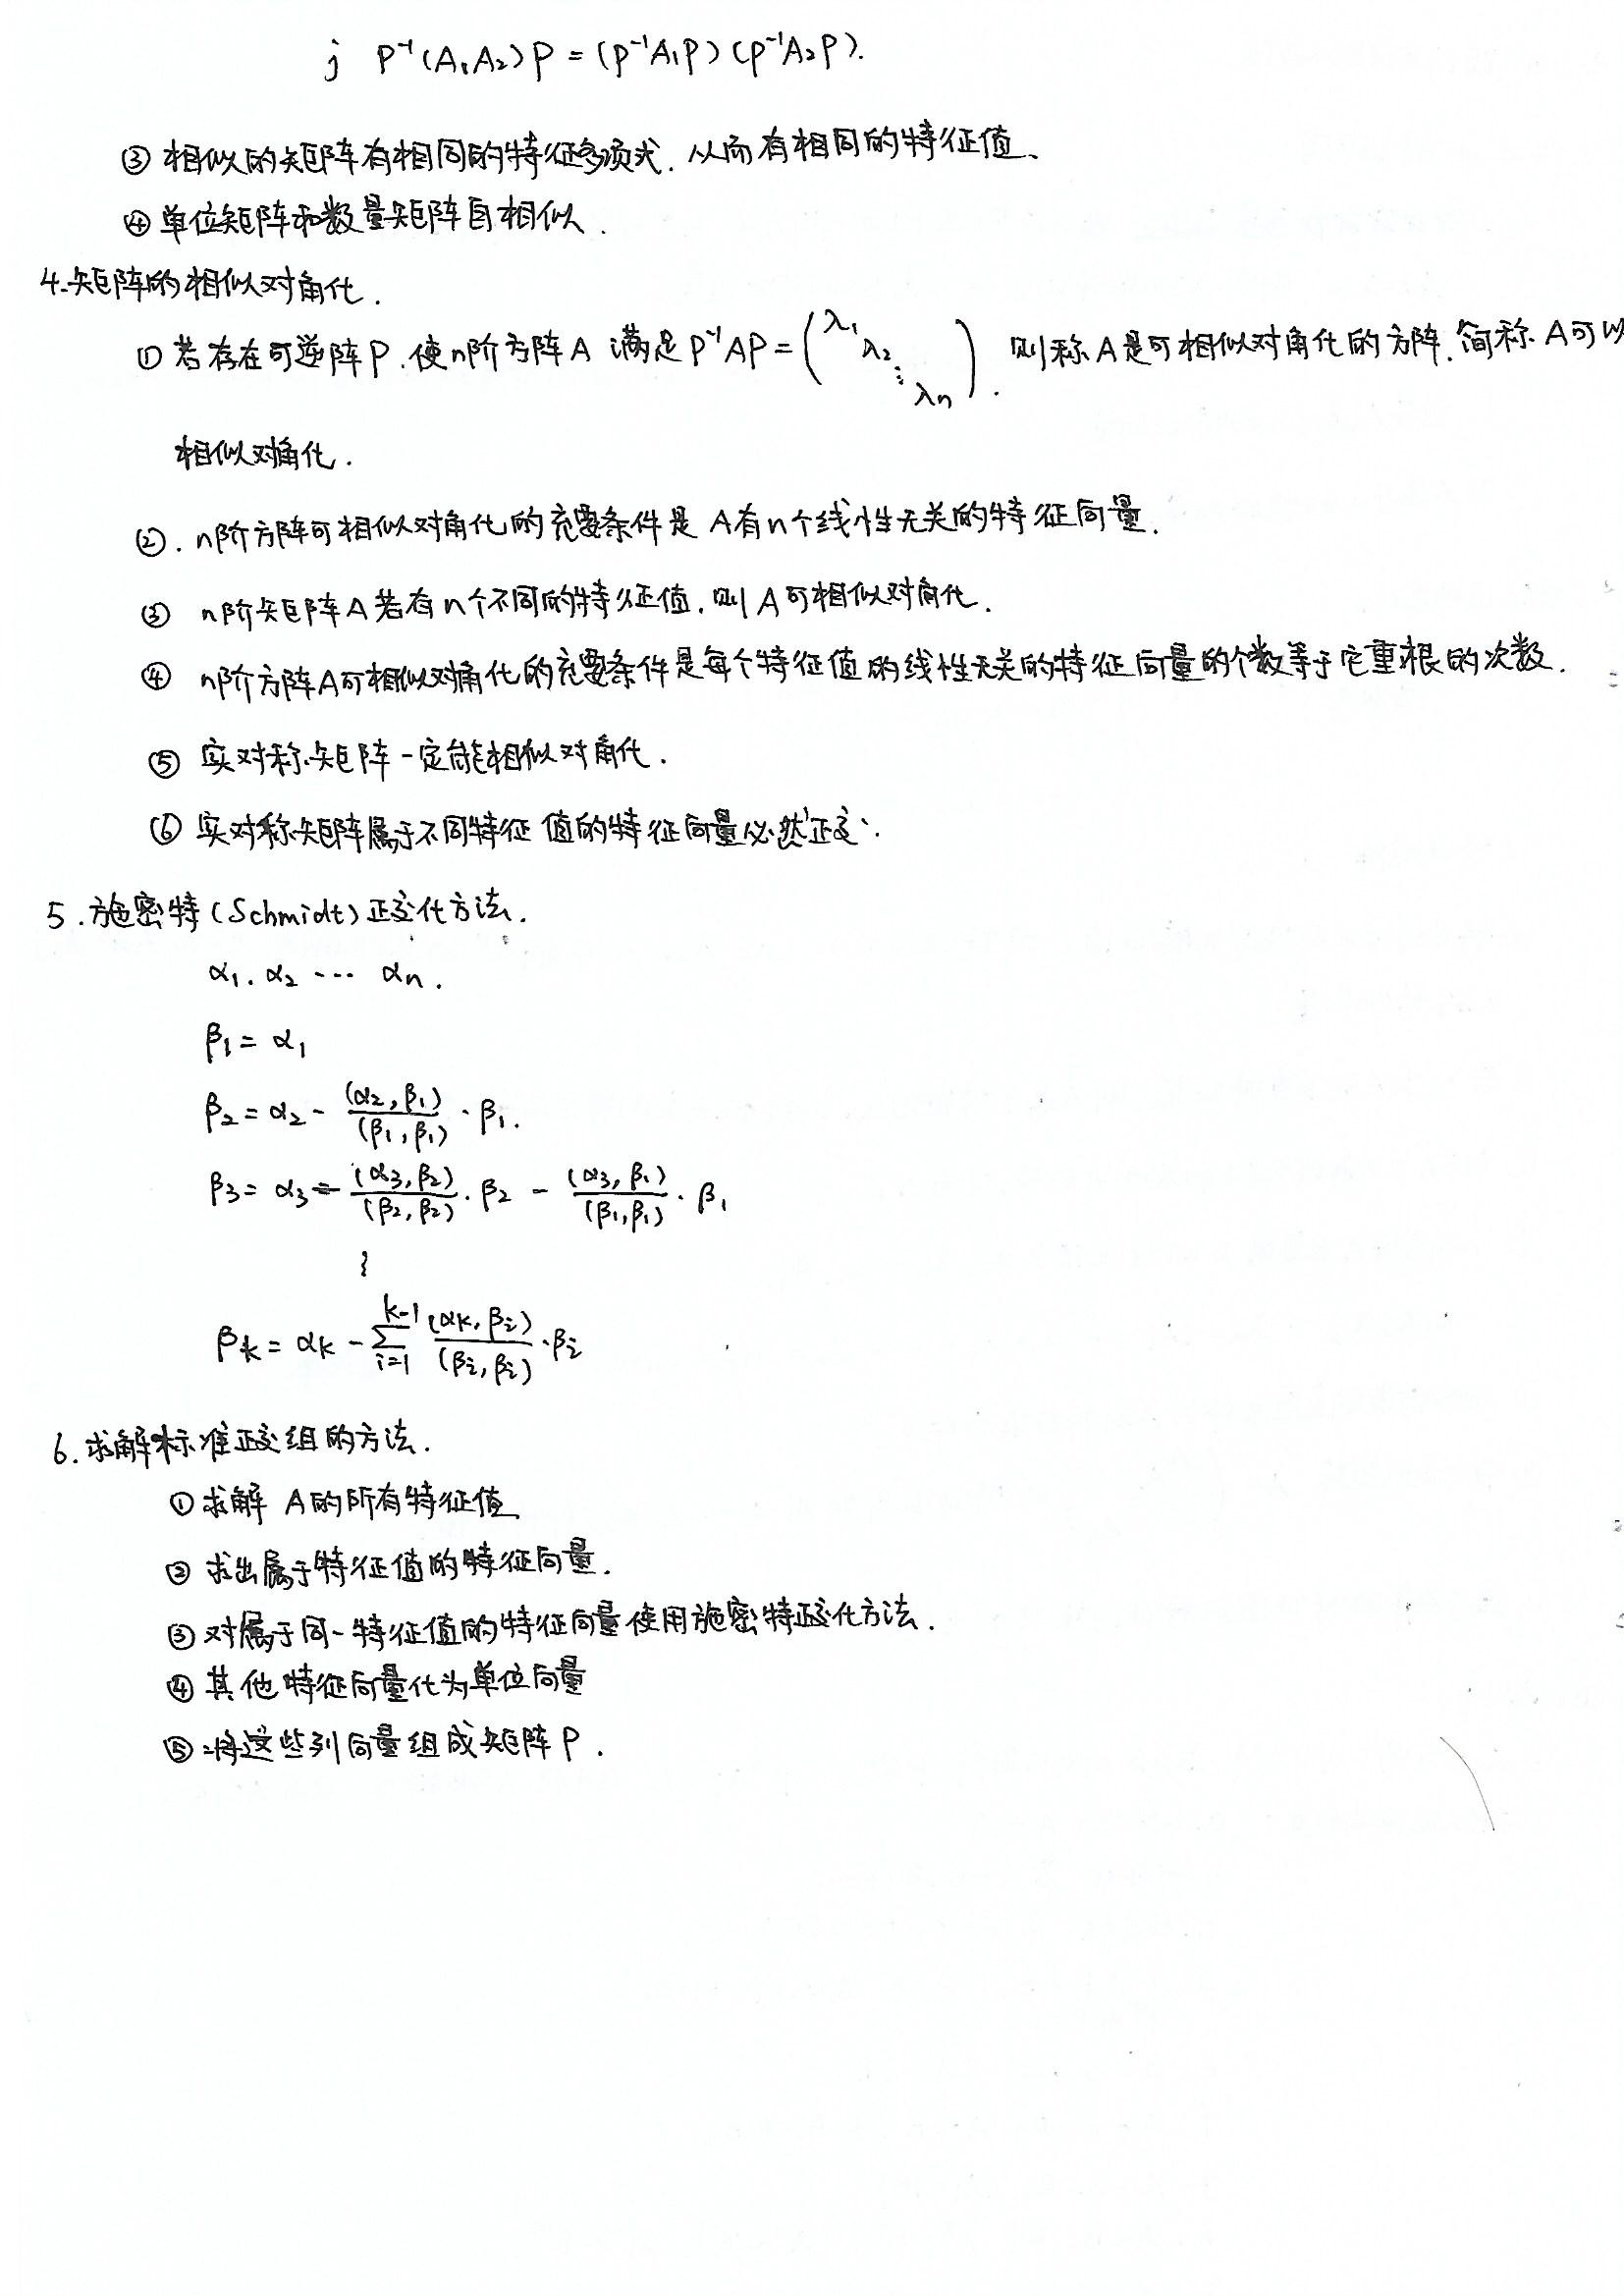 j P⁻¹(A₁A₂)P = (P⁻¹A₁P)(P⁻¹A₂P).
③ 相似的矩阵有相同的特征多项式. 从而有相同的特征值、
④ 单位矩阵和数量矩阵自相似.
4.矩阵的相似对角化.
① 若存在可逆阵P.使n阶方阵A 满足P⁻¹AP=(λ₁ λ₂ ⋱ λn). 则称A是可相似对角化的方阵.简称A可以
相似对角化.
②. n阶方阵可相似对角化的充要条件是A有n个线性无关的特征向量.
③ n阶矩阵A若有n个不同的特征值.则A可相似对角化.
④ n阶方阵A可相似对角化的充要条件是每个特征值的线性无关的特征向量的个数等于它重根的次数.
⑤ 实对称矩阵一定能相似对角化.
⑥ 实对称矩阵属于不同特征值的特征向量必然正交.
5.施密特(Schmidt)正交化方法.
α₁. α₂ ⋯ αn.
β₁ = α₁
β₂ = α₂ - (α₂,β₁)/(β₁,β₁) · β₁.
β₃ = α₃ - (α₃,β₂)/(β₂,β₂) · β₂ - (α₃,β₁)/(β₁,β₁) · β₁
⋮
βk = αk - ∑_{i=1}^{k-1} (αk,βi)/(βi,βi) · βi
6.求解标准正交组的方法.
① 求解 A的所有特征值
② 求出属于特征值的特征向量.
③ 对属于同一特征值的特征向量使用施密特正交化方法.
④ 其他特征向量化为单位向量
⑤ 将这些列向量组成矩阵P.